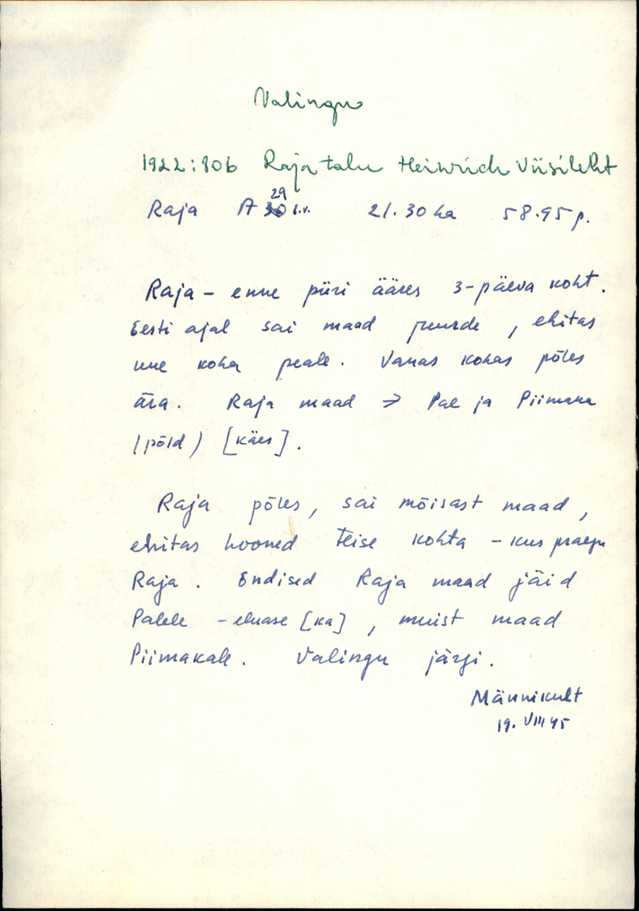 Valingu
1922:806 Raja talu Heinrich Viisileht
29
Raja A 30 s.v. 21.30 ha 58.95 p.
Raja – enne piiri ääres 3-päeva koht.
Eesti ajal sai maad juurde, ehitas
uue koha peale. Vanas kohas põles
ära. Raja maad → Pae ja Piimaka
(põld) [käes].
Raja põles, sai mõisast maad,
ehitas hooned teise kohta – kus praegu
Raja. Endised Raja maad jäid
Palele – eluase [ka], muist maad
Piimakale. Valingu järgi.
Männikult
19. VIII 45